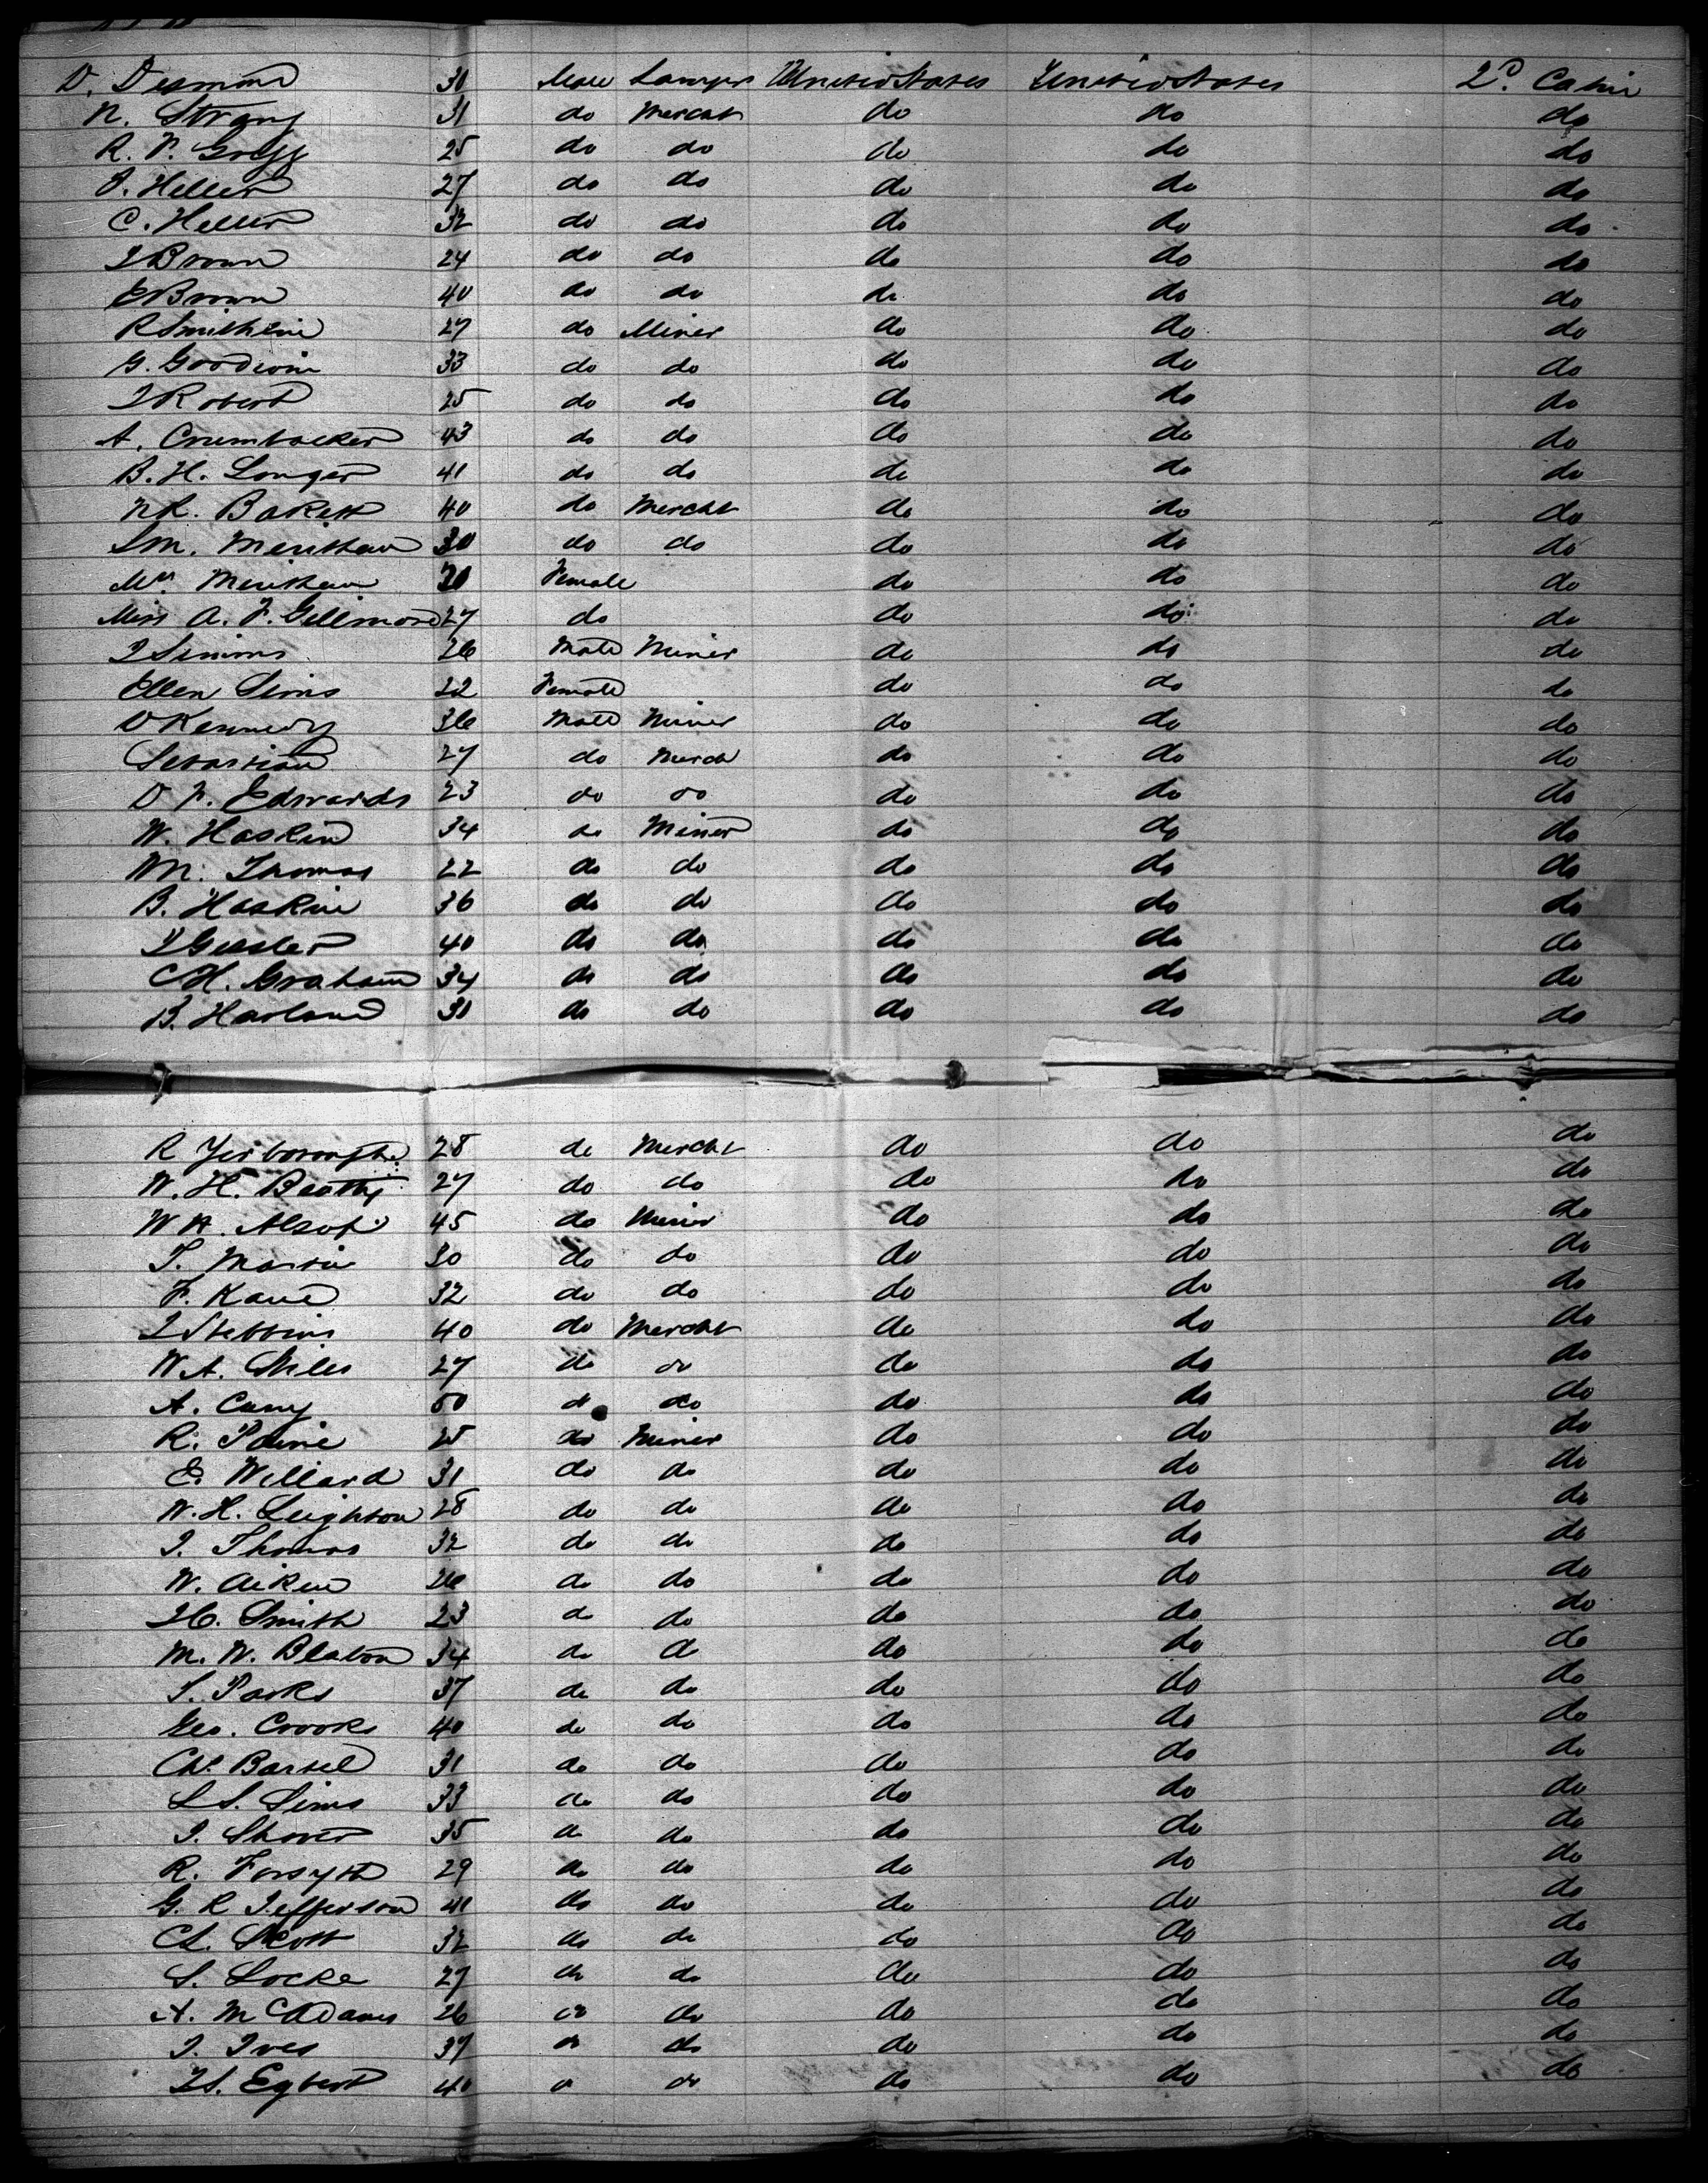 D. Desmond 30 Male Lawyer United States United States 2d. Cabin
N. Strang 31 do Mercht do do do
R. F. Gregg 25 do do do do do
J. Heller 27 do do do do do
C. Heller 32 do do do do do
J Brown 24 do do do do do
E Brown 40 do do do do do
R Smithline 27 do Miner do do do
G. Goodwin 33 do do do do do
J Robert 25 do do do do do
A. Crumbacker 43 do do do do do
B. H. Longer 41 do do do do do
N R. Barett 40 do Mercht do do do
S M. Merithew 30 do do do do do
Mrs. Merithew 20 Female do do do
Miss A. F. Gillmore 27 do do do do
J Simms 26 Male Miner do do do
Ellen Sims 22 Female do do do
D Kennedy 36 Male Miner do do do
Sebastian 27 do Merch do do do
D F. Edwards 23 do do do do do
W. Haskin 34 do Miner do do do
M. Thomas 22 do do do do do
B. Haskin 36 do do do do do
J Geesler 40 do do do do do
C H. Graham 34 do do do do do
B. Harland 30 do do do do do
R Yerborough 28 do Mercht do do do
W. H. Beatty 27 do do do do do
W A. Alsop 45 do Miner do do do
T. Martin 30 do do do do do
F. Kane 32 do do do do do
J Stebbins 40 do Mercht do do do
W A. Niles 27 do do do do do
A. Cary 50 do do do do do
R. Paine 25 do Miner do do do
E. Willard 31 do do do do do
W. H. Leighton 28 do do do do do
J. Thomas 32 do do do do do
W. Aiken 26 do do do do do
H. Smith 23 do do do do do
M. W. Blaton 34 do do do do do
S. Parks 37 do do do do do
Geo. Crooks 40 do do do do do
Ch. Bartel 31 do do do do do
L S. Sims 33 do do do do do
J. Shover 35 do do do do do
R. Forsyth 29 do do do do do
G. R Jefferson 41 do do do do do
C L. Scott 32 do do do do do
S. Locke 27 do do do do do
A. McAdams 26 do do do do do
J. Ives 37 do do do do do
H. Egbert 40 do do do do do